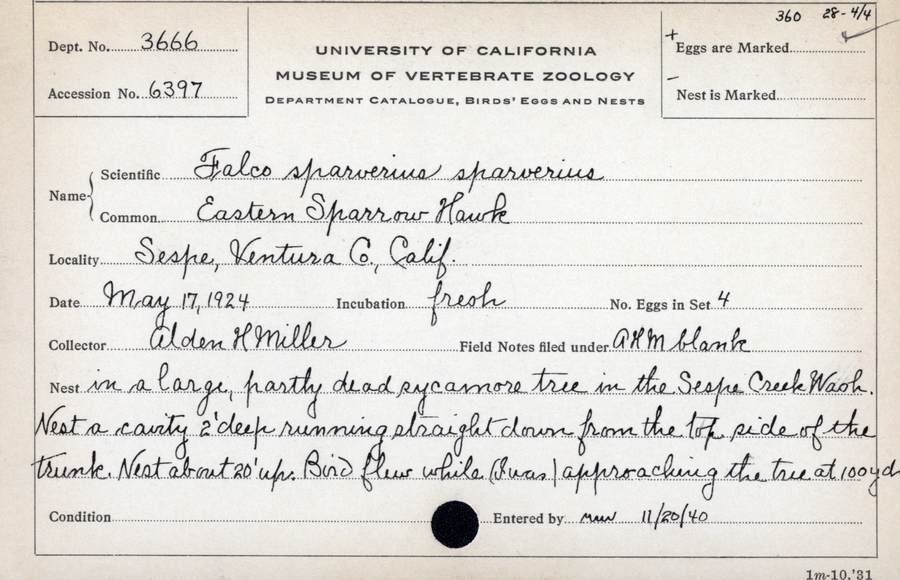 360 28-4/4
Dept. No. 3666
UNIVERSITY OF CALIFORNIA
+ Eggs are Marked
MUSEUM OF VERTEBRATE ZOOLOGY
Accession No. 6397
DEPARTMENT CATALOGUE, BIRDS' EGGS AND NESTS
- Nest is Marked
Name { Scientific Falco sparverius sparverius
Common Eastern Sparrow Hawk
Locality Sespe, Ventura Co., Calif.
Date May 17, 1924 Incubation fresh No. Eggs in Set 4
Collector Alden H Miller Field Notes filed under AHM blank
Nest in a large, partly dead sycamore tree in the Sespe Creek Wash.
Nest a cavity 2' deep running straight down from the top side of the
trunk. Nest about 20' up. Bird flew while (I was) approaching the tree at 100 yds
Condition Entered by 11/20/40
1m-10,'31